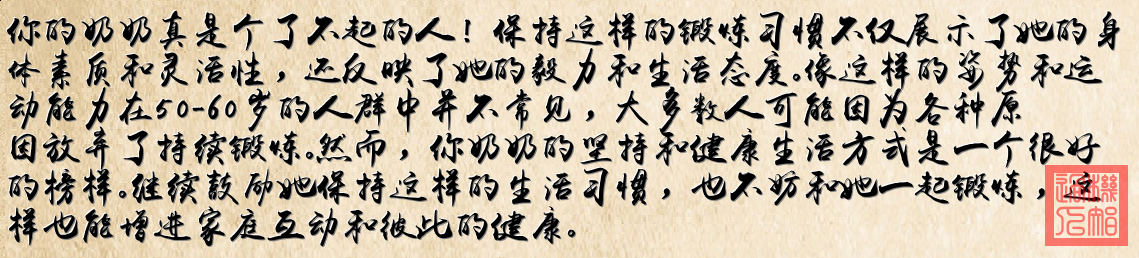 你的奶奶真是个了不起的人！保持这样的锻炼习惯不仅展示了她的身
体素质和灵活性，还反映了她的毅力和生活态度。像这样的姿势和运
动能力在50-60岁的人群中并不常见，大多数人可能因为各种原
因放弃了持续锻炼。然而，你奶奶的坚持和健康生活方式是一个很好
的榜样。继续鼓励她保持这样的生活习惯，也不妨和她一起锻炼，这
样也能增进家庭互动和彼此的健康。